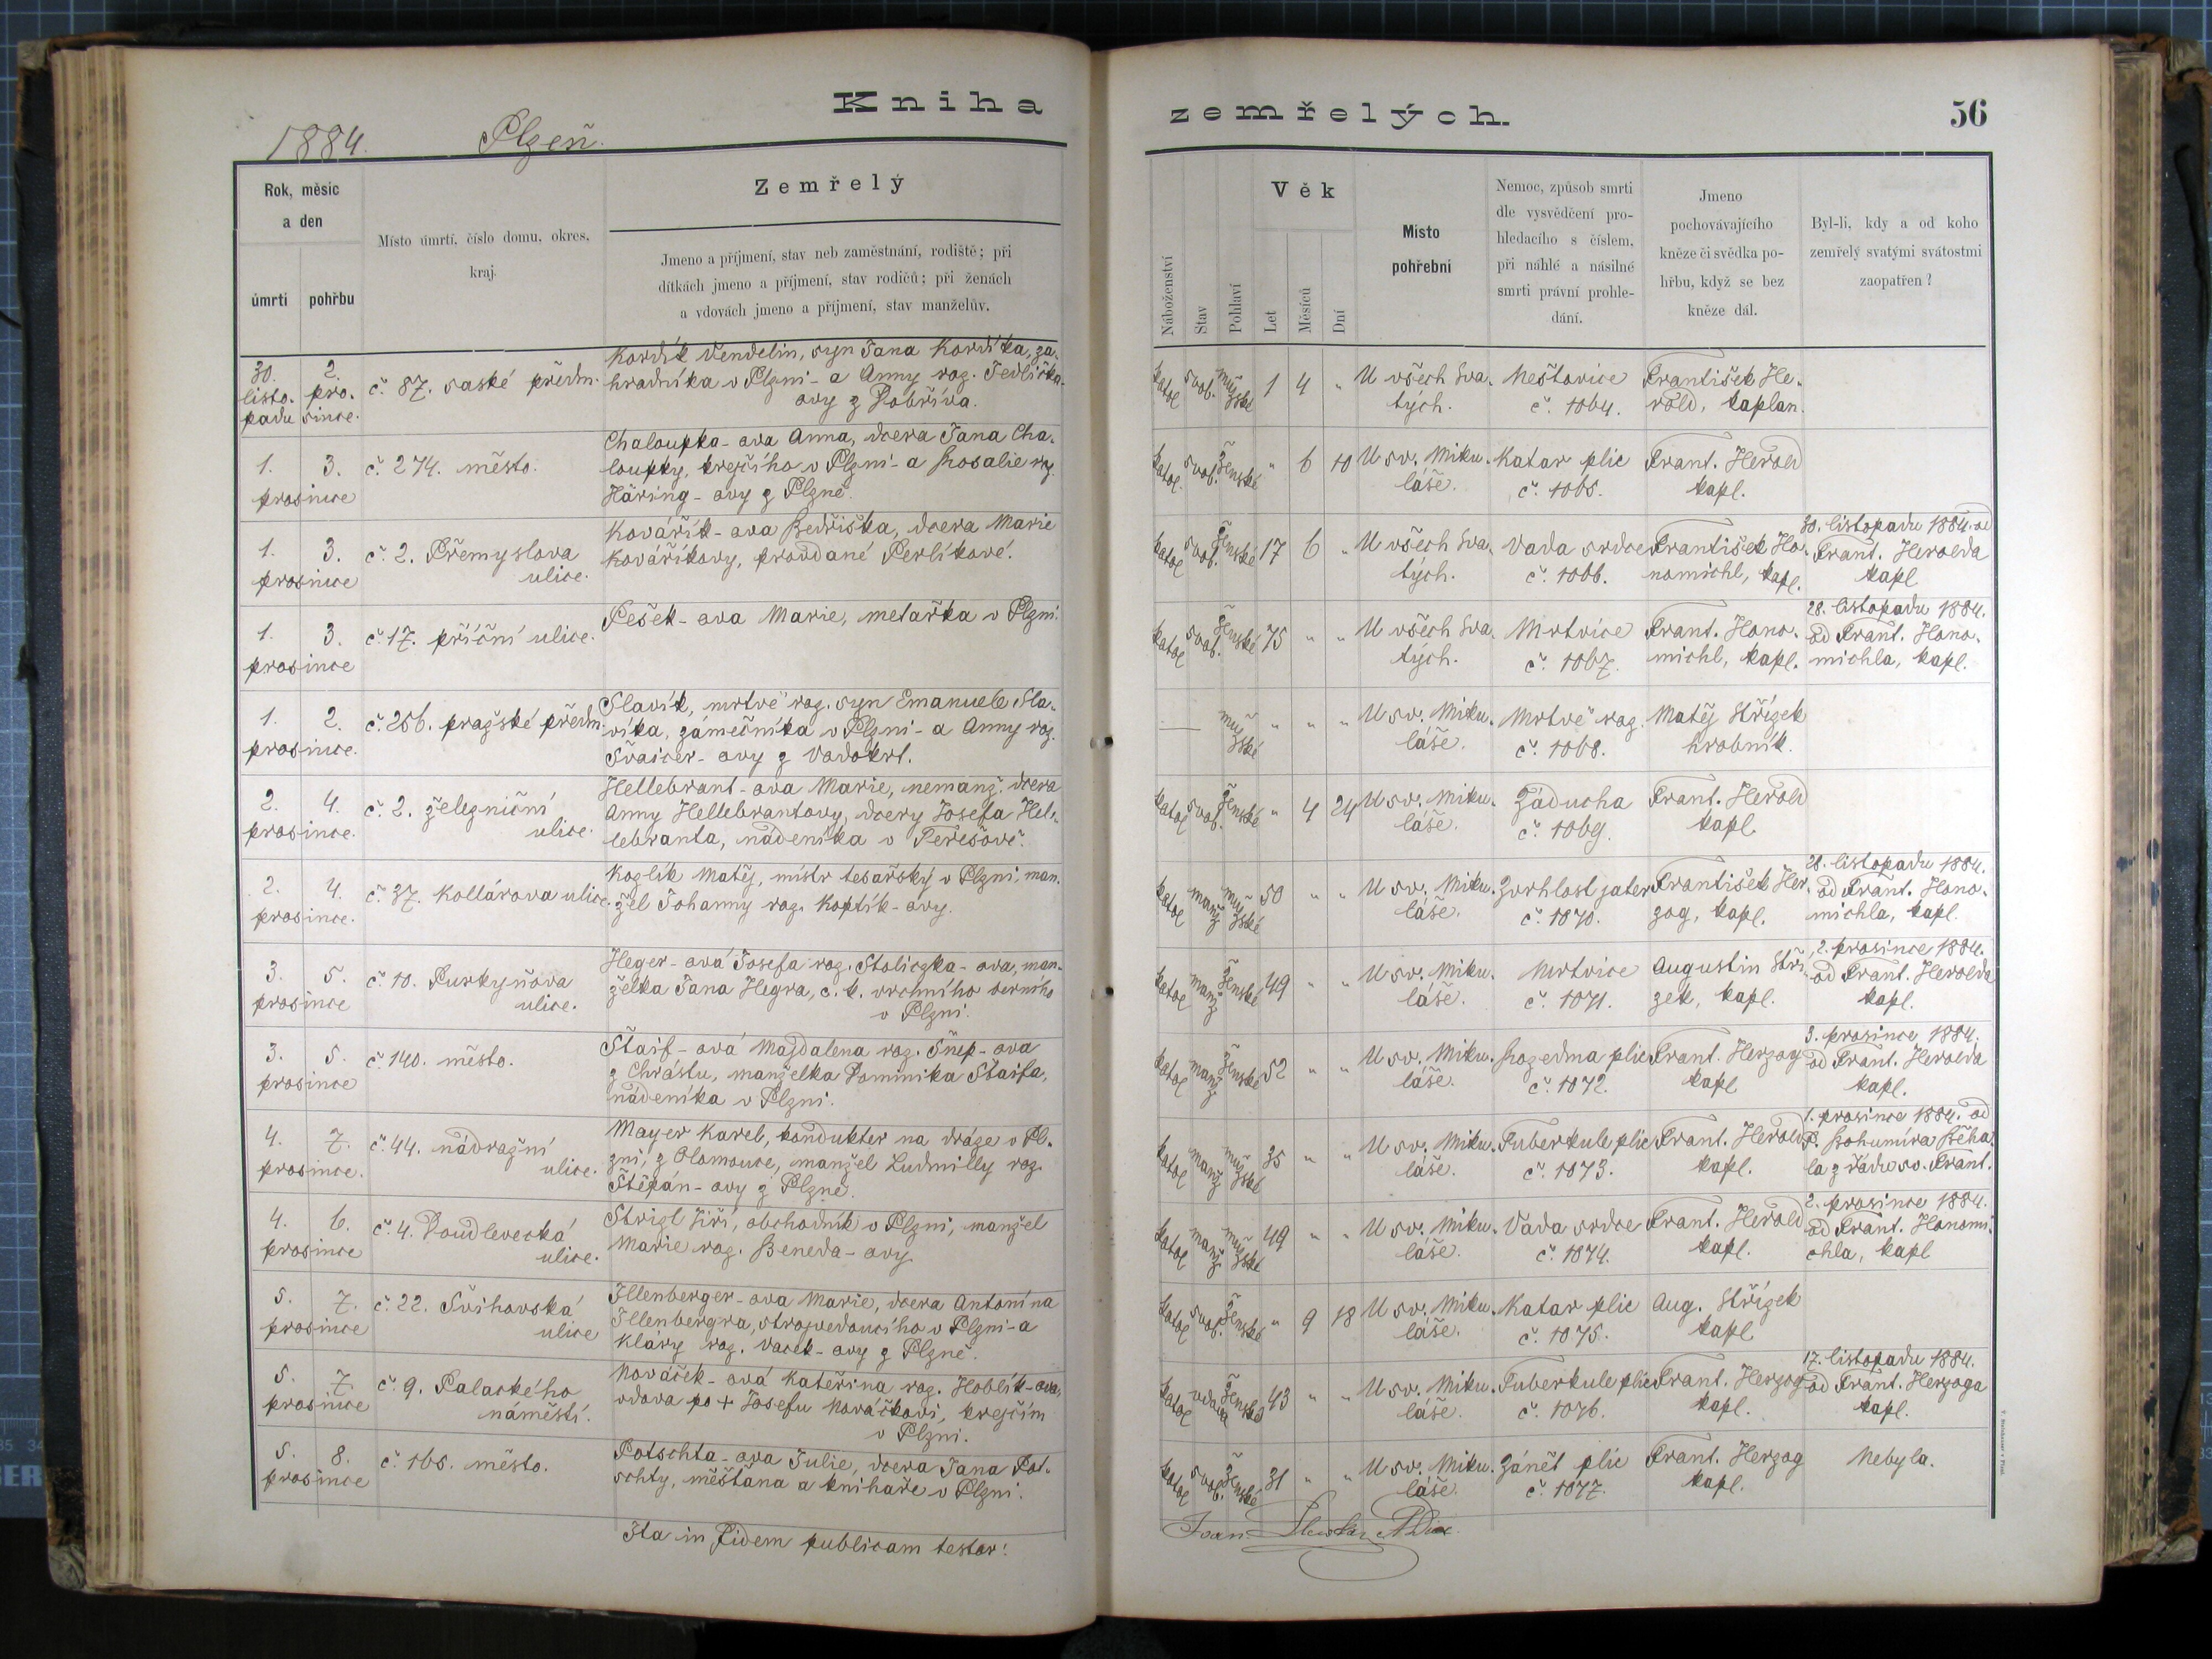 Kniha
1884. Plzeň.
Rok, měsíc
a den
úmrtí pohřbu
Místo úmrtí, číslo domu, okres,
kraj.
Zemřelý
Jmeno a příjmení, stav neb zaměstnání, rodiště; při
dítkách jmeno a příjmení, stav rodičů; při ženách
a vdovách jmeno a příjmení, stav manželův.
30. 2.
listo- pro-
padu since.
č 87. saské předm.
Kordík Vendelin, syn Jana Kordíka, za-
hradníka v Plzni - a Anny roz. Jedlička-
ovy z Dobříva.
1. 3.
prosince
č. 274. město.
Chaloupka-ova Anna, dcera Jana Cha-
loupky, krejčího v Plzni - a Rosalie roz.
Häring-ovy z Plzně.
1. 3.
prosince
č. 2. Přemyslova
ulice.
Kovářík-ova Bedřiška, dcera Marie
Kováříkovy, provdané Perlíkové.
1. 3.
prosince
č. 17. příční ulice.
Pešek-ova Marie, metařka v Plzni.
1. 2.
prosince.
č. 256. pražské předm.
Slavík, mrtvě roz. syn Emanuele Sla-
víka, zámečníka v Plzni - a Anny roz.
Švaicer-ovy z Vodokrt.
2. 4.
prosince.
č. 2. železniční
ulice.
Hellebrant-ova Marie, nemanž. dcera
Anny Hellebrantovy, dcery Josefa Hel-
lebranta, nádeníka v Terešově.
2. 4.
prosince.
č. 37. Kollárova ulice.
Koglík Matěj, mistr tesařský v Plzni, man-
žel Johanny roz. Koptík-ovy.
3. 5.
prosince
č. 10. Purkyňova
ulice.
Heger-ová Josefa roz. Stoliczka-ova, man-
želka Jana Hegra, c. k. vrchního berního
v Plzni.
3. 5.
prosince
č. 140. město.
Štaif-ová Majdalena roz. Šnep-ova
z Chrástu, manželka Dominika Štaifa,
nádeníka v Plzni.
4. 7.
prosince.
č. 44. nádražní
ulice.
Mayer Karel, kondukter na dráze v Pl-
zni, z Olomouce, manžel Ludmilly roz.
Štěpán-ovy z Plzně.
4. 6.
prosince
č. 4. Doudlevecká
ulice.
Strigl Jiří, obchodník v Plzni, manžel
Marie roz. Beneda-ovy.
5. 7.
prosince
č. 22. Švihovská
ulice
Illenberger-ova Marie, dcera Antonína
Illenbergra, strojvedoucího v Plzni - a
Kláry roz. Vacek-ovy z Plzně.
5. 7.
prosince
č. 9. Palackého
náměstí.
Nováček-ová Kateřina roz. Hoblík-ova,
vdova po + Josefu Nováčkovi, krejčím
v Plzni.
5. 8.
prosince
č. 165. město.
Potschta-ova Julie, dcera Jana Pot-
schty, měšťana a knihaře v Plzni.
Ita in Fidem publicam testor!
zemřelých.
56
Náboženství
Stav
Pohlaví
Věk
Let
Měsíců
Dní
Místo
pohřební
Nemoc, způsob smrti
dle vysvědčení pro-
hledacího s číslem,
při náhlé a násilné
smrti právní prohle-
dání.
Jmeno
pochovávajícího
kněze či svědka po-
hřbu, když se bez
kněze dál.
Byl-li, kdy a od koho
zemřelý svatými svátostmi
zaopatřen?
katol svob. mužské 1 4 „
U všech Sva-
tých.
Neštovice
č. 1064.
František He-
rold, kaplan.
katol. svob. ženské „ 6 10
U sv. Miku-
láše.
Katar plic
č. 1065.
Frant. Herold
kapl.
katol svob. ženské 17 6 „
U všech Sva-
tých.
Vada srdce
č. 1066.
František Ho-
nomichl, kapl.
30. listopadu 1884. od
Frant. Herolda
kapl
katol svob. ženské 75 „ „
U všech Sva-
tých.
Mrtvice
č. 1067.
Frant. Hono-
michl, kapl.
28. listopadu 1884.
od Frant. Hono-
michla, kapl.
— mužské „ „ „
U sv. Miku-
láše.
Mrtvě roz.
č. 1068.
Matěj Střízek
hrobník.
katol svob. ženské „ 4 24
U sv. Miku-
láše.
Záducha
č. 1069.
Frant. Herold
kapl
katol manž mužské 50 „ „
U sv. Miku-
láše.
Zvrhlost jater
č. 1070.
František Her-
zog, kapl.
28. listopadu 1884.
od Frant. Hono-
michla, kapl.
katol manž ženské 49 „ „
U sv. Miku-
láše.
Mrtvice
č. 1071.
Augustin Stří-
zek, kapl.
2. prosince 1884.
od Frant. Herolda
kapl.
katol manž ženské 52 „ „
U sv. Miku-
láše.
Rozedma plic
č. 1072.
Frant. Herzog
kapl
3. prosince 1884.
od Frant. Herolda
kapl.
katol manž mužské 35 „ „
U sv. Miku-
láše.
Tuberkule plic
č. 1073.
Frant. Herold
kapl.
1. prosince 1884. od
P. Bohumíra Běha-
la z řádu sv. Frant.
katol manž mužské 49 „ „
U sv. Miku-
láše.
Vada srdce
č. 1074.
Frant. Herold
kapl.
2. prosince 1884.
od Frant. Honomi-
chla, kapl
katol svob. ženské „ 9 18
U sv. Miku-
láše.
Katar plic
č. 1075.
Aug. Střízek
kapl
katol vdova ženské 43 „ „
U sv. Miku-
láše.
Tuberkule plic
č. 1076.
Frant. Herzog
kapl.
17. listopadu 1884.
od Frant. Herzoga
kapl.
katol svob. ženské 31 „ „
U sv. Miku-
láše.
Zánět plic
č. 1077.
Frant. Herzog
kapl.
Nebyla.
Joan